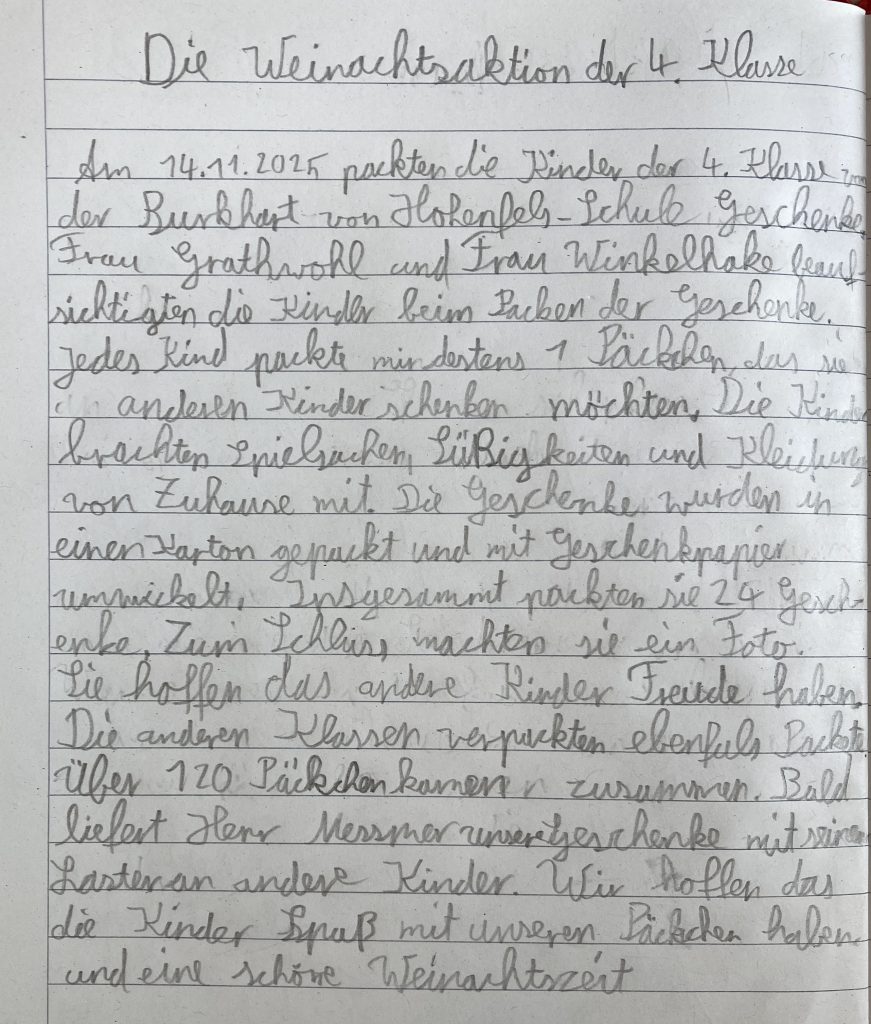 Die Weinachtsaktion der 4. Klasse
Am 14.11.2025 packten die Kinder der 4. Klasse von
der Burkhart von Hohenfels-Schule Geschenke.
Frau Grathwohl und Frau Winkelhake beauf-
sichtigten die Kinder beim Packen der Geschenke.
Jedes Kind packte mindestens 1 Päckchen, das sie
anderen Kinder schenken möchten. Die Kinder
brachten Spielsachen, Süßigkeiten und Kleidung
von Zuhause mit. Die Geschenke wurden in
einen Karton gepackt und mit Geschenkpapier
ummwickelt. Insgesammt packten sie 24 Gesch-
enke. Zum Schluss machten sie ein Foto.
Sie hoffen das andere Kinder Freude haben.
Die anderen Klassen verpackten ebenfals Packete
Über 120 Päckchen kamen zusammen. Bald
liefert Herr Messmer unsere Geschenke mit seinem
Laster an andere Kinder. Wir hoffen das
die Kinder Spaß mit unseren Päckchen haben
und eine schöne Weinachtszeit